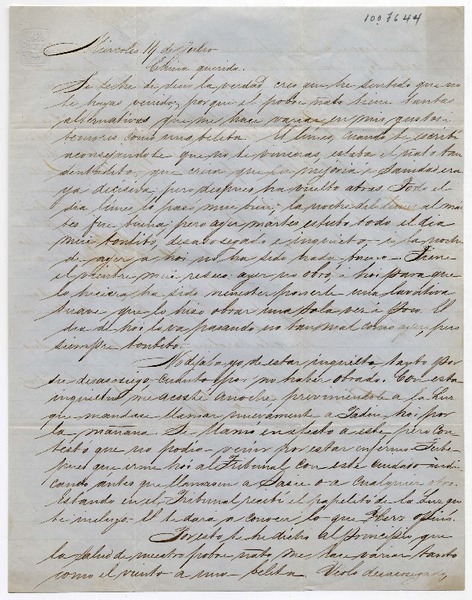 1007644
Miércoles 14 de Julio
China querida.
Te he de decir la verdad, creo que he sentido que no
te hayas venido, porque el pobre ñato tiene tantas
alternativas que me hace variar en mis gustos
temores como una beleta. El lúnes, cuando te escribí
aconsejandote que no te vinieras, estaba el ñato tan
que creía que la mejoría o sanidad era
ya decisiva, pero despues ha vuelto atras. Todo el
dia lúnes lo pasó mui bien; la noche del lúnes al már
tes fue buena pero ayer martes estubo todo el dia
mui tontito, desasosegado e inquieto i la noche
de ayer a hoi no ha sido nada buena. Tiene
el vientre mui reseco ayer no obró i hoi para que
lo hiciera ha sido menester ponerle una lavativa
suave que lo hizo obrar una sola vez i poco. El
dia de hoi lo va pasando no tan mal como ayer, pero
siempre tontito.
dejaba yo de estar inquieto tanto por
su desasosiego cuanto por no haber obrado. Con esta
inquietud me acosté anoche previniendole a la Luz
que mandase llamar nuevamente a hoi por
la mañana. Se llamó en efecto a este, pero con
testó que no podia venir por estar enfermo.
que irme hoi al Tribunal con este cuidado indi
cando antes que llamasen a o a cualquier otro.
Estando en el Tribunal recibí el papelito de la Luz que
te incluyo. El te dará a conocer lo que opinó.
Por esto te he dicho al principio que
la salud de nuestro pobre ñato me hace variar tanto
como el viento a una beleta. Verlo desasosegado,